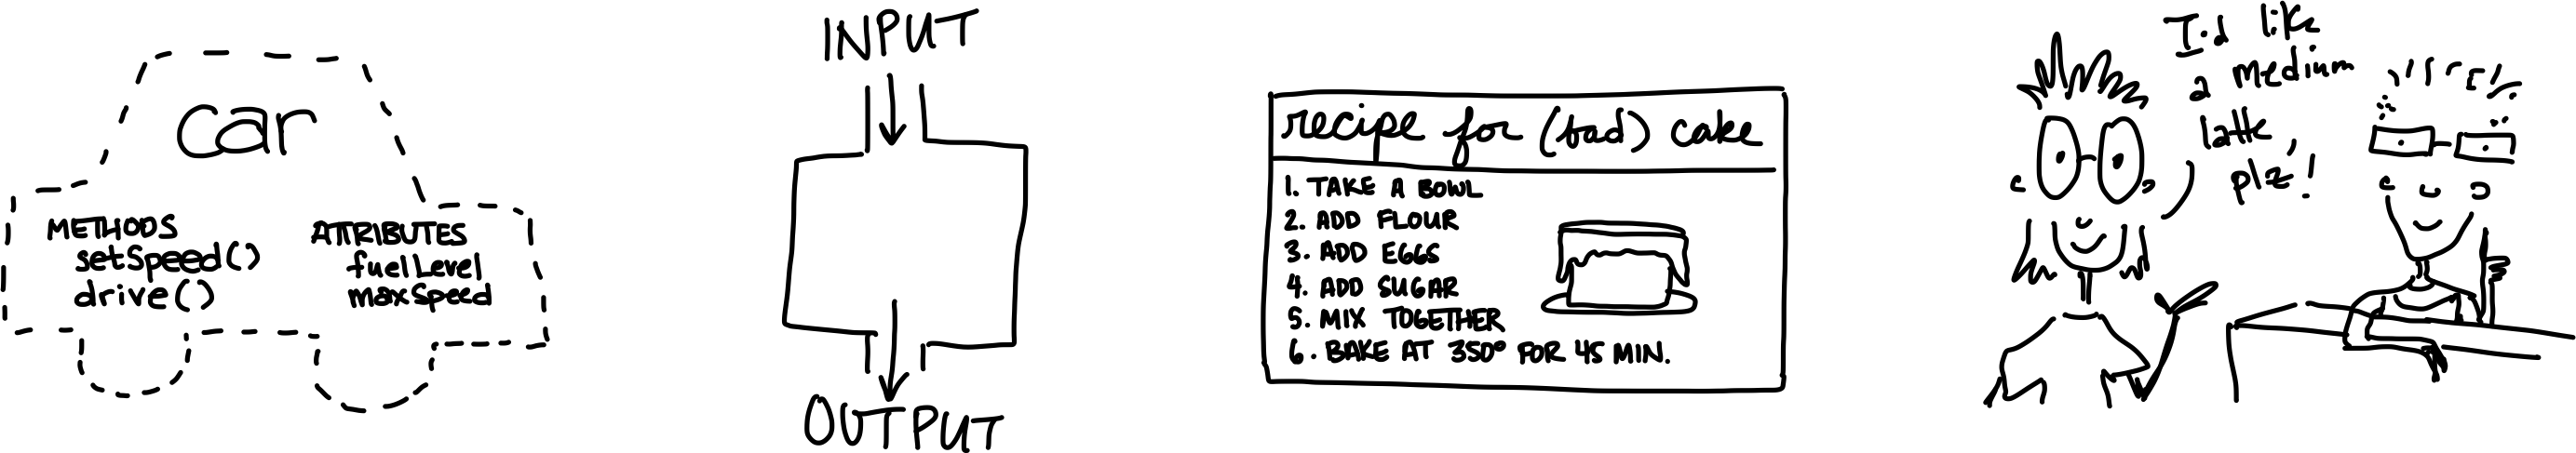 car
METHODS
setSpeed()
drive()
ATTRIBUTES
fuelLevel
maxSpeed
INPUT
OUTPUT
recipe for (bad) cake
1. TAKE A BOWL
2. ADD FLOUR
3. ADD EGGS
4. ADD SUGAR
5. MIX TOGETHER
6. BAKE AT 350° FOR 45 MIN.
I'd like
a medium
latte,
plz!